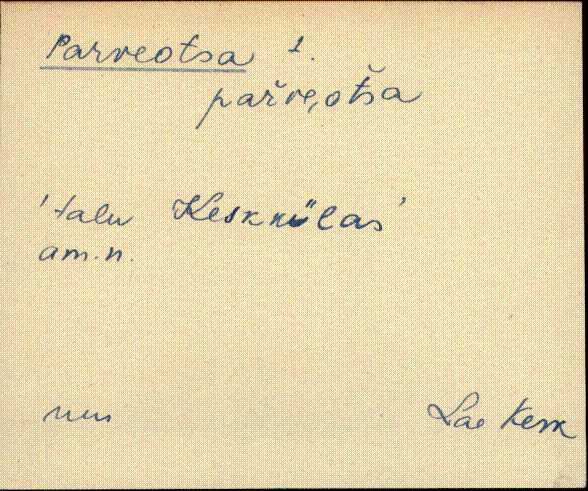 Parveotsa 1.
pařve,otša
'talu Keskkülas'
am. n.
Lae Kesk